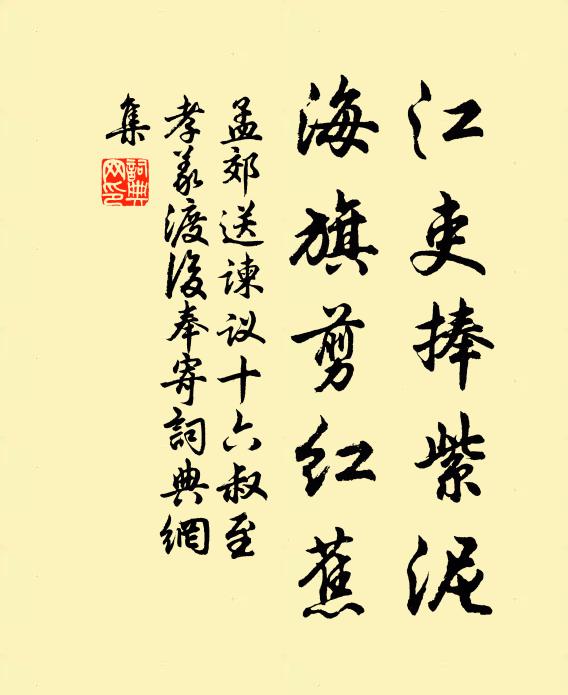 江吏捧紫泥
海旗剪红蕉
孟郊送谏议十六叔至
孝义渡后奉寄詞典網
集
詞典
网印